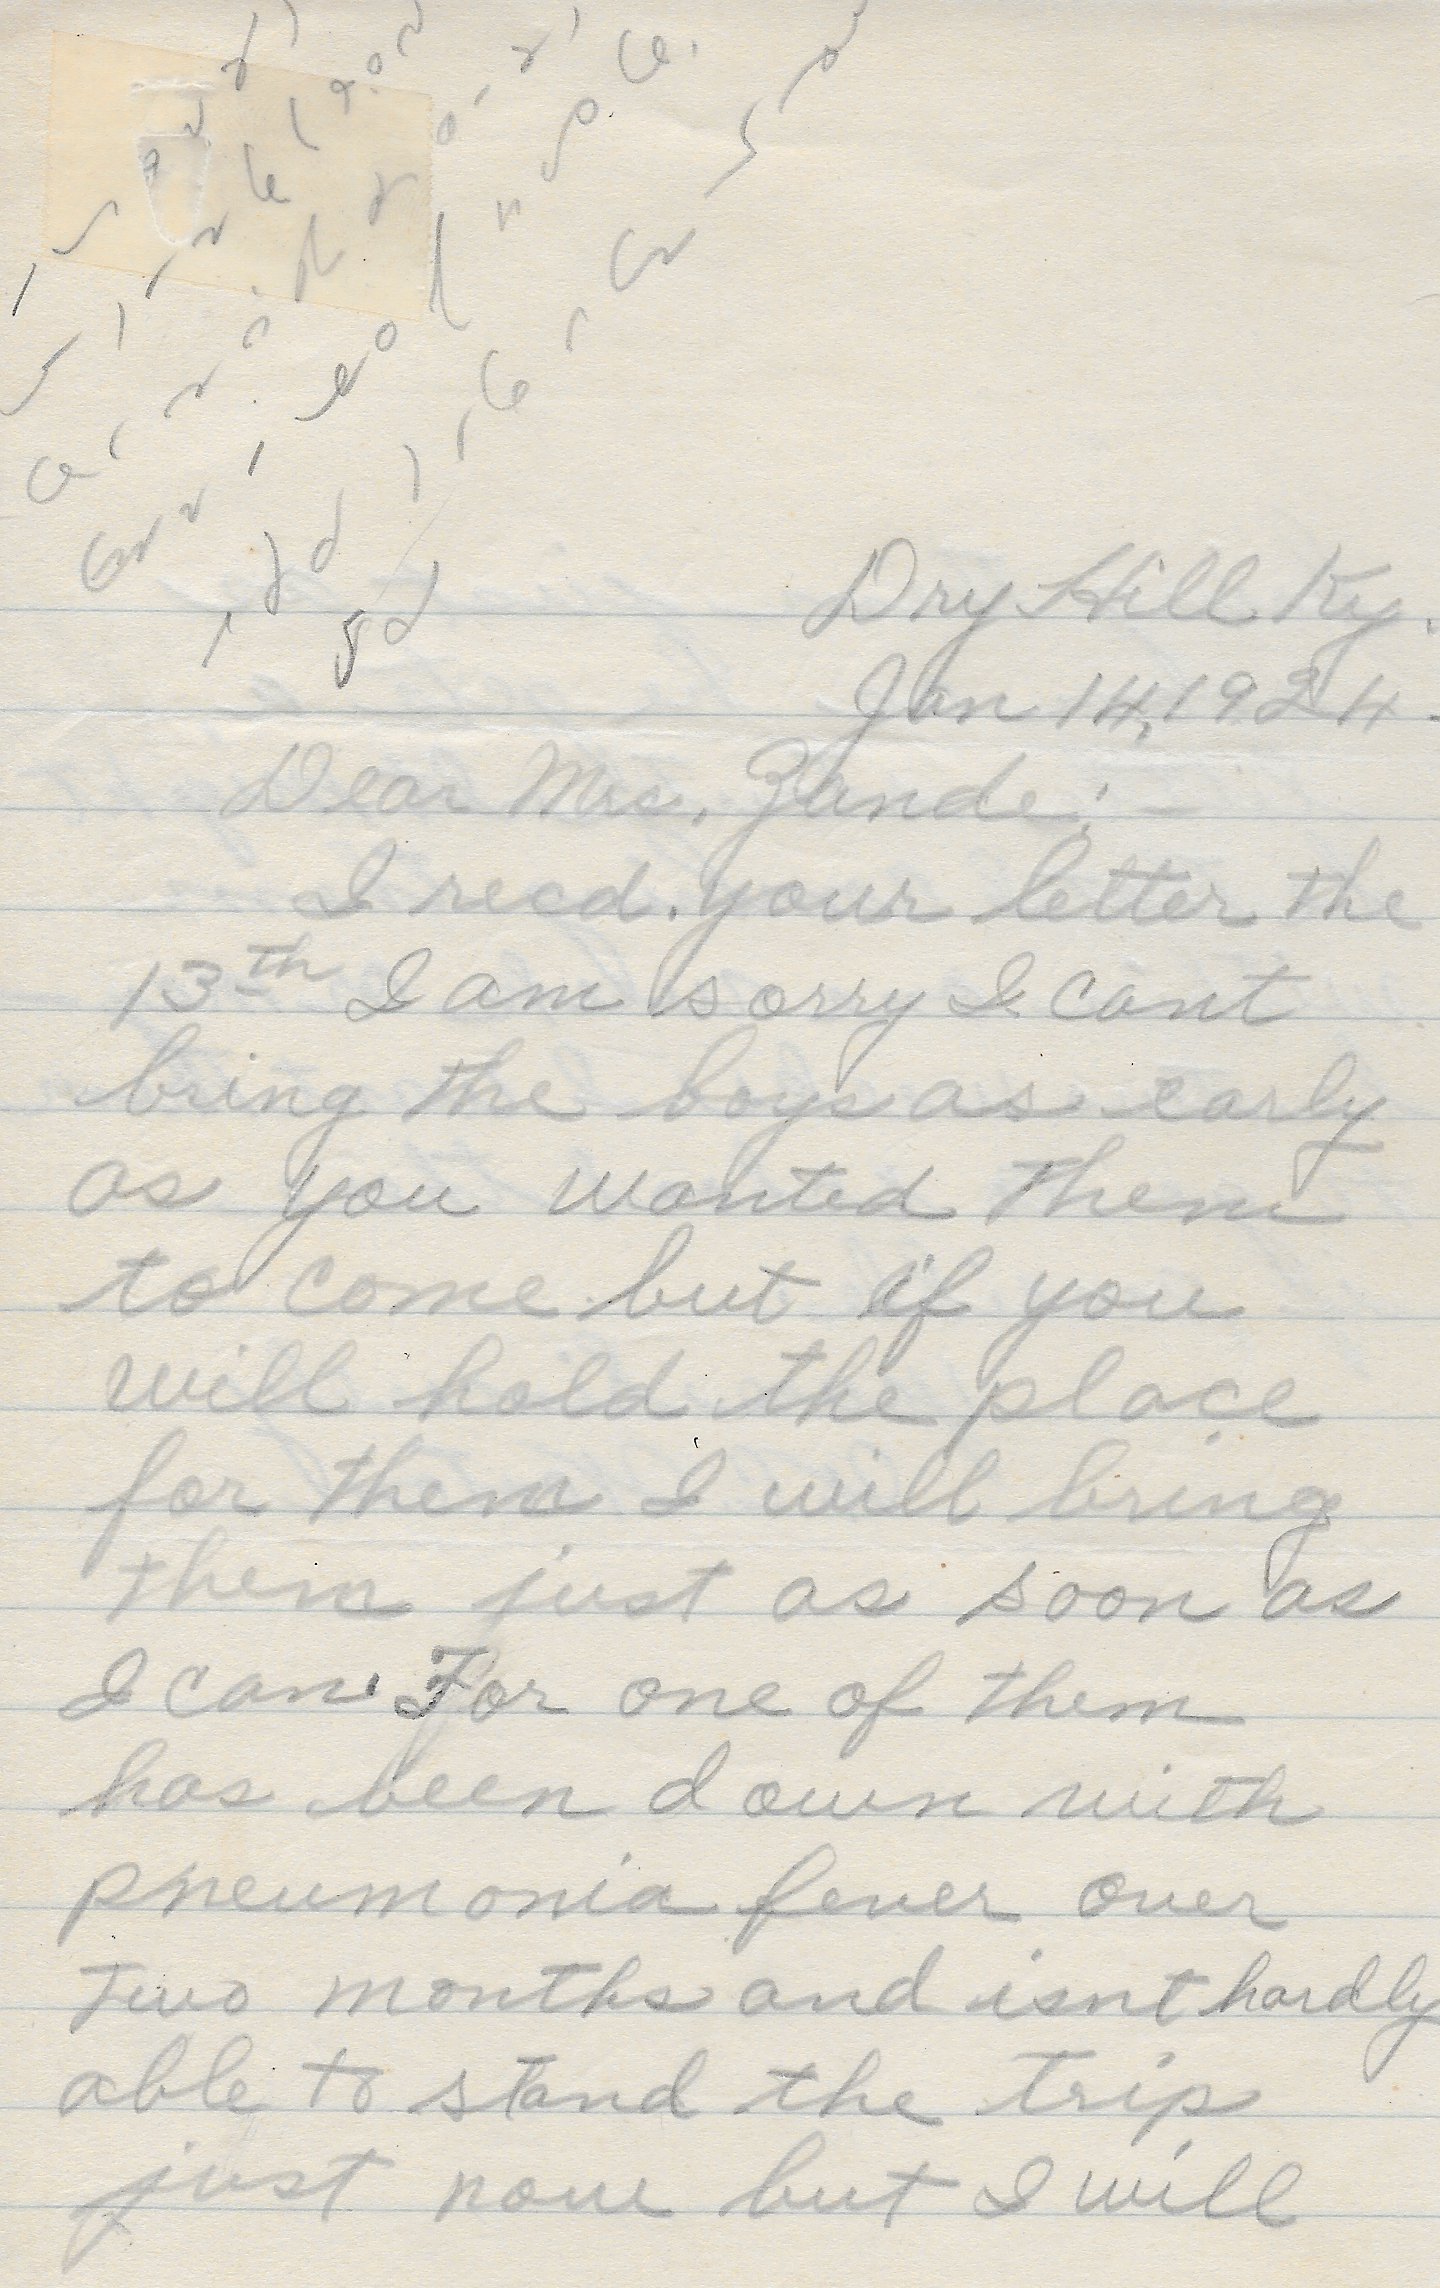 Dry Hill Ky.
Jan 14, 1924.
Dear Mrs. Zande; -
I recd. your letter the
13th I am sorry I cant
bring the boys as early
as you wanted them
to come but if you
will hold the place
for them I will bring
them just as soon as
I can. For one of them
has been down with
pneumonia fever over
two months and isnt hardly
able to stand the trip
just now but I will